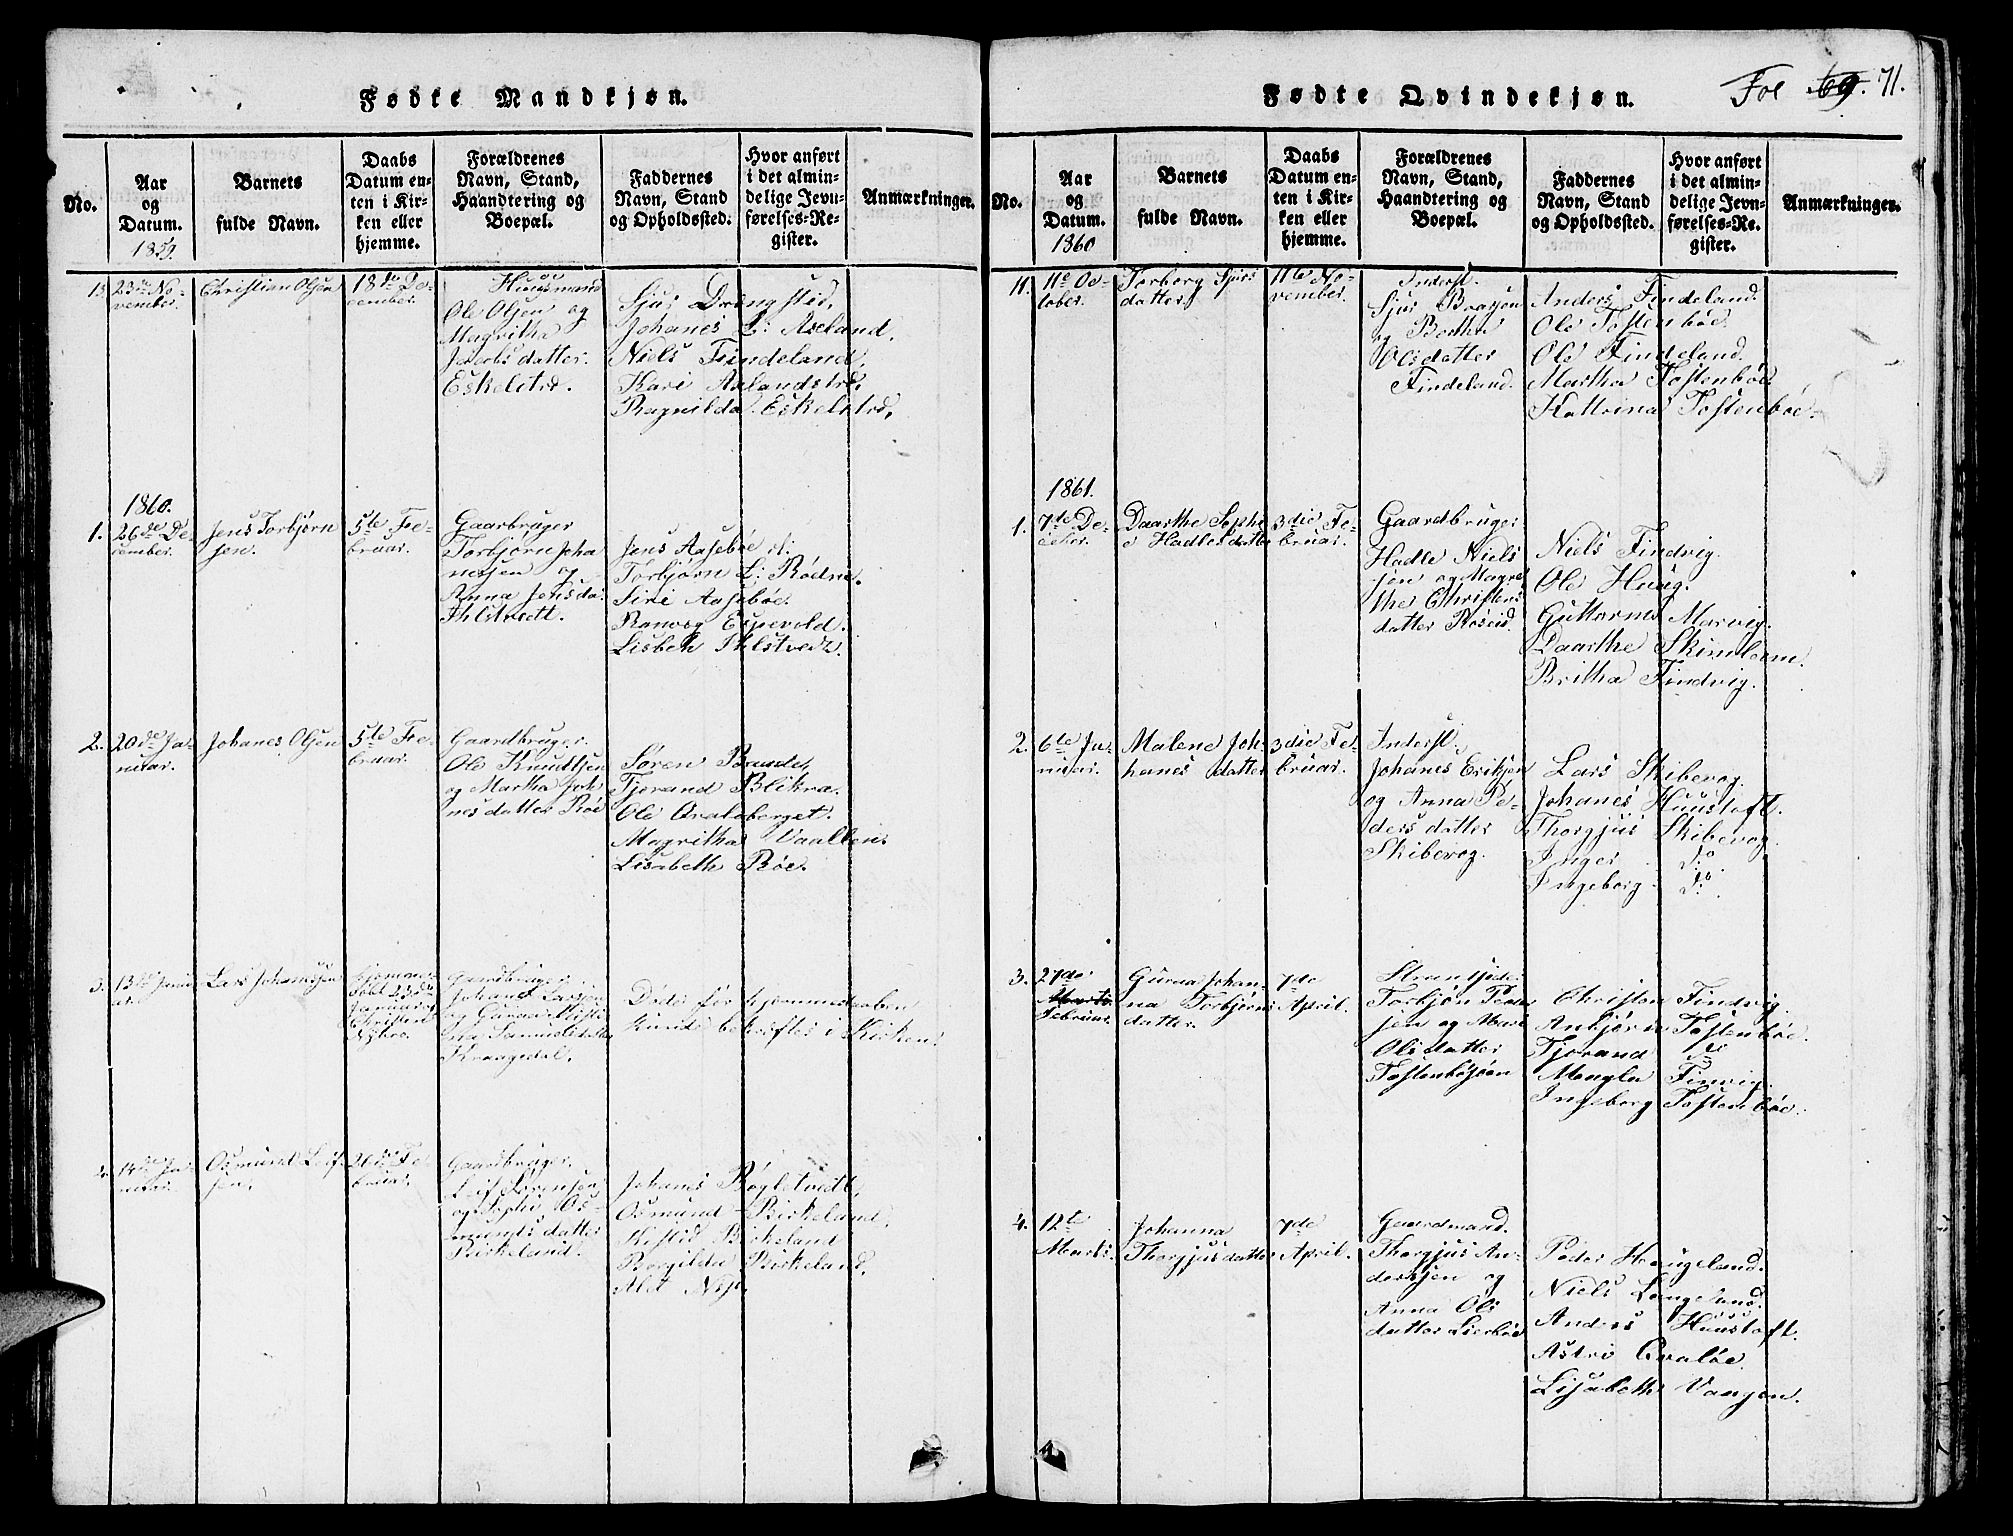 Fødte Mandkjøn.
No.
Aar
og
Datum.
1859.
Barnets
fulde Navn.
Daabs
Datum en-
ten i Kir-
ken eller
hjemme.
Forældrenes
Navn, Stand,
Haandtering og
Boepæl.
Faddernes
Navn, Stand
og Opholdssted.
Hvor anført
i det almin-
delige Jevn-
førelses-Re-
gister.
Anmærkninger.
13.
23de No-
vember.
Christian Olsen
18de De-
cember.
Huusmand
Ole Olsen og
Magritha
Jacobsdatter.
Eskelstrø.
Sjur Drengstid,
Johanes L: Axeland.
Niels Findeland,
Kari Aalandstrø,
Ragnilda Eskelstrø,
1860.
1.
26de De-
cember.
Jens Torbjørn
sen.
5te Fe-
bruar.
Gaarbruger
Torbjørn Joha
nesen og
Anna Jensda:
Ihlstvedt.
Jens Aasebøe
Torbjørn L: Rødne.
Siri Aasebøe.
Ranveg Espevold.
Lisbeth Ihlstvedt.
2.
20de Ja-
nuar.
Johanes Olsen
5te Fe-
bruar.
Gaardbruger.
Ole Knuttsen
og Martha Joh
nesdatter Røe
Søren
Tjerand Blikra.
Ole Qvaleberget.
Magritha Vaallen.
Lisabeth Røe.
3.
13de Janu
ar.
Lars Johanessen
hjemme-
døbt 23de
Januar
Christen
Nybro.
Gaardbruger
Johanes Larsen
og
na Samuelsdatter
Kraagedal.
Døde før hjemmedaaben
kunde bekræftes i Kirken.
4.
14de Ja-
nuar.
Osmund Leif-
sen.
26de Fe-
bruar.
Gaardbruger.
Leif Sørensen
og Sophi Os-
mundsdatter
Birkeland.
Johanes Røgletvedt,
Osmund Birkeland,
Kistid Birkeland
Borgilda Birkeland,
Alet
Fødte Qvindekjøn.
Fol 69. 71.
No.
Aar
og
Datum.
1860
Barnets
fulde Navn.
Daabs
Datum en-
ten i Kir-
ken eller
hjemme.
Forældrenes
Navn, Stand,
Haandtering og
Boepæl.
Faddernes
Navn, Stand
og Opholdssted.
Hvor anført
i det almin-
delige Jevn-
førelses-Re-
gister.
Anmærkninger.
11.
11te Oc-
tober.
Torborg Sjurs
datter,
11te No-
vember.
Inderst.
Sjur
og Berthe
Olsdatter
Findeland.
Anders Findeland.
Ole Tostenbøe.
Ole Findeland.
Martha Tostenbøe.
Kattrina Tostenbøe.
1861.
1.
7de De-
cebr.
Daarthe Sophi
e Hadlesdatter
3die Fe-
bruar.
Gaardbruger
Hadle Niels
sen og Magre
the Christens
datter Røseid.
Niels Findvig.
Ole Huug.
Guttorm Marvig.
Daarthe
Britha Findvig.
2.
6te Ja-
nuar.
Malene Joh-
hanes datter
3die Fe-
bruar.
Inderst.
Johanes Eriksen
og Anna Pe-
ders datter
Skibevog.
Lars Skibevog.
Johanes Huustoft.
Thorgjus Skibevog.
Inger Do.
Ingeborg Do.
3.
27de
Marts
Februar.
Guraa Johan-
na Torbjørns
datter.
7de
April.
Strandsider
Torbjøn Peder
sen og Mari
Olsdatter
Tostenbøsøen
Christen Findvig.
Anbjør Tostenbøe.
Tjerand do
Mangla Finvig.
Ingeborg Tostenbøe.
4.
12te
Marts.
Johanna
Thorgjusdatter
7de
April.
Gaardmand.
Thorgjus An-
dersen og
Anna Ols
datter Lierbøe
Peder Haugeland.
Niels Langeland.
Anders Huustoft.
Astri Qvaløe.
Lisabeth Vangen.